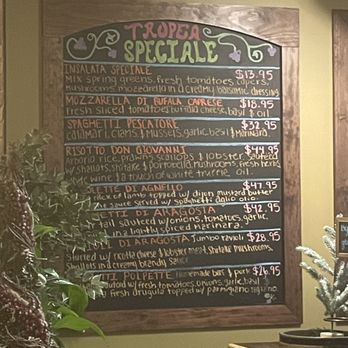 TROPEA
SPECIALE
INSALATA SPECIALE $13.95
Mix spring greens, fresh tomatoes, capers,
mushrooms mozzarella in a creamy balsamic dressing
MOZZARELLA DI BUFALA CAPRESE $18.95
Fresh sliced tomatoes, buffala cheese, basil & oil
SPAGHETTI PESCATORE $32.95
calamari, clams, & mussels, garlic, basil & marinara
RISOTTO DON GIOVANNI $44.95
Arborio rice, prawns, scallops & lobster, sauteed
w/ shallots, shiitake & portobella, mushrooms, fresh herbs
wine & a touch of white truffle oil
DI AGNELLO $47.95
rack of lamb topped w/ dijon mustard butter
sauce served w/ spaghetti aglio olio
DI ARAGOSTA $42.95
tail sauteed w/ onions, tomatoes, garlic,
in a lightly spiced marinara
DI ARAGOSTA Jumbo ravioli $28.95
Stuffed w/ ricotta cheese & lobster meat, shiitake mushrooms,
shallots in a creamy brandy sauce
POLPETTE homemade beef & pork $26.95
w/ fresh tomatoes, onions, garlic, basil &
fresh arugula topped w/ parmigiano